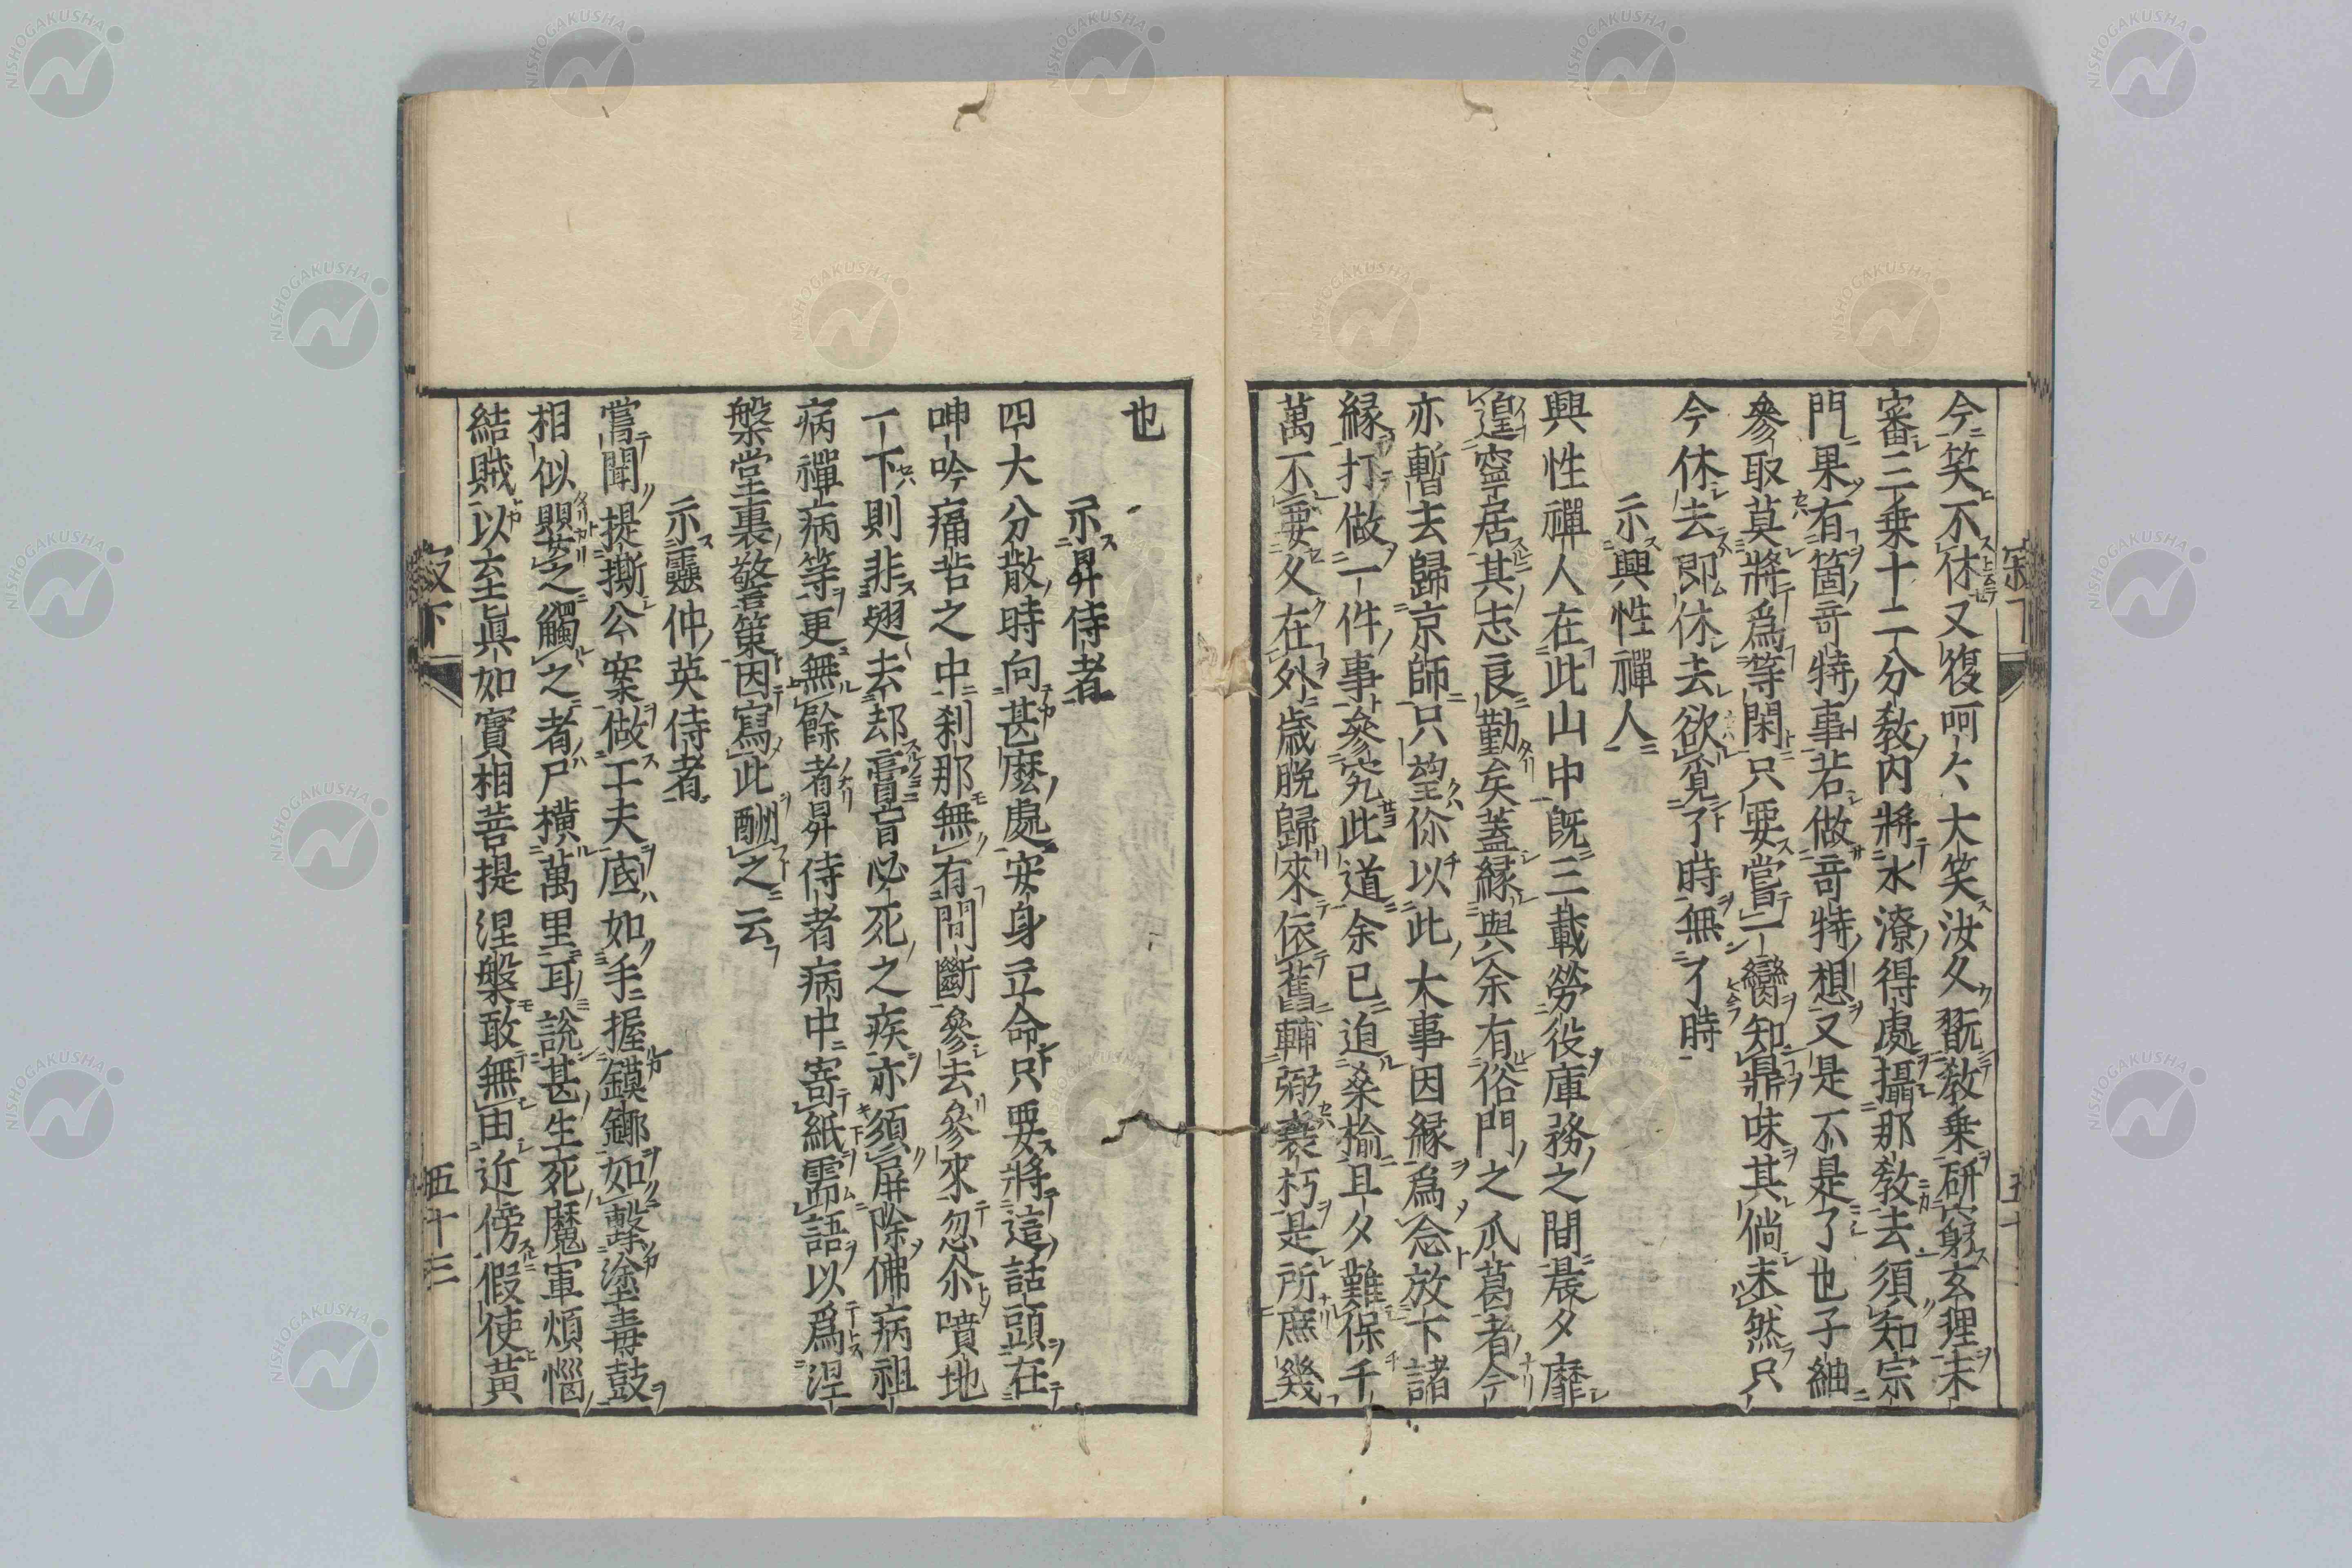 今笑不休又復呵〻大笑汝久翫教乗研窮玄理未
審三乗十二分教内將水潦得處攝那教去須知宗
門果有箇奇特事若做奇特想又是不是了也子細
參取莫將爲等閑只要嘗一臠知鼎味其倘未然只
今休去即休去欲覓了時無了時
示興性禪人
興性禪人在此山中既三載勞役庫務之間晨夕靡
遑寧居其志良勤矣蓋縁與余有俗門之爪葛者今
亦暫去歸京師只望你以此大事因縁爲念放下諸
縁打做一件事參究此道余已迫桑榆旦夕難保千
萬不要久在外歳晩歸來依舊輔弼衰朽是所庶幾
也
示昇侍者
四大分散時向甚麽處安身立命只要將這話頭在
呻吟痛苦之中刹那無有間斷參去參來忽尒噴地
一下則非翅去却膏肓必死之疾亦須屏除佛病祖
病禪病等更無餘者昇侍者病中寄紙需語以爲涅
槃堂裏警策因寫此酬之云
示靈仲英侍者
嘗聞提撕公案做工夫底如手握鏌鎁如擊塗毒鼓
相似嬰之觸之者尸横萬里耳説甚生死魔軍煩惱
結賊以至眞如實相菩提涅槃敢無由近傍假使黄
寂下
五十三